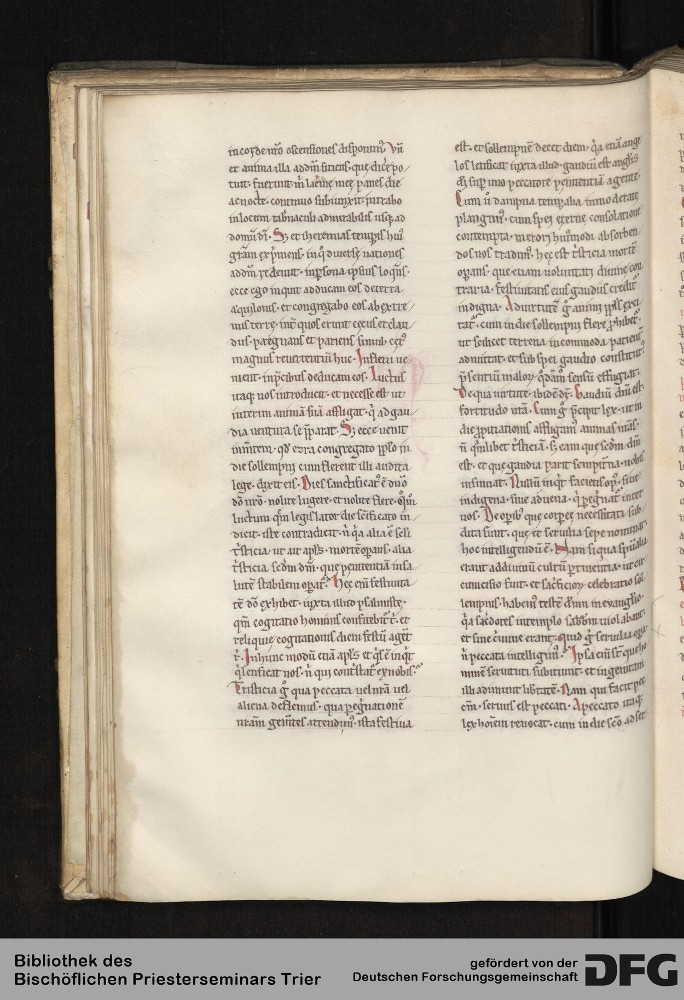 in corde nr̄o ascensiones disponim̄ Vn̄
et anima illa add̄m sitiens, que dicē po
tuit. fuerunt m̄ lacrime meę panes die
ac nocte. continuo subiunxit. intrabo
in locum tabnaculi admirabilis usq; ad
domū di. Sꝫ et iheremias temp̄is hui᷒
ecce ego inquit adducam eos de terra
aquilonis. et congregabo eos ab extre
mis terrę. int̄ quos erunt cęcus et clau
dus. p̄regnans et pariens simul. cęt᷒
magnus reuertentiū huc. In fletu ue
nient. in p̄cibus deducam eos. Luctus
itaq; nos introducit. et necesse est ut
interim animā suā affligat. q̄ ad gau
dia uentura se p̄parat. Sꝫ ecce uenit
in mentem. qd̄ ezra congregato pp̄lo in
die sollempni cum flerent illi audita
lege. dixit eis. Dies sanctificat᷒ ē dn̄o
dō nr̄o. nolite lugere. et nolite flere. qm̄
luctum quem legislator die sc̄ificato in
dicit. iste contradicit. n̄ q̄a alia ē sc̄li
t̄sticia. ut ait apl̄s. mortē op̄ans. alia
t̄sticia sc̄dm dm̄. que penitentiā in sa
lutē stabilem op̄at᷒. Hęc eni festiuita
tē dō exhibet. iuxta illud psalmistę.
qm̄ cogitatio hominis confitebit᷒ t̄. et
reliquię cogitationis diem festū agēt
t̄. In hunc modū etiā apl̄s
Tristicia ḡ qua peccata uel nr̄a uel
aliena deflemus. qua p̄egrinationē
nr̄am gemētes attendim᷒. ista festiua
est. et sollempnē decet diem. q̄a etiā ange
los letificat iuxta illud. gaudiū est anglis
di sup uno peccatore penitentiā agente.
Cum u᷒ dampna temp̄alia inmoderate
plangim᷒. cum spei ęternę consolatione
contempta. merori huim̄odi absorben
dos nos tradim᷒. hęc est t̄sticia mortē
op̄ans. que etiam uoluntati diuinę con
traria. festiuitatis eius gaudiis credit᷒
indigna.
ut scilicet terrena incommoda patiens
De qua uirtute. ibidē dr̄. Gaudiū dn̄i est
fortitudo nr̄a. Cum ḡ p̄cipit lex. ut in
die p̄pitiationis affligam᷒ animas nr̄as.
n̄ q̄mlibet t̄sticiā. sꝫ eam que sc̄dm dm̄
est. et que gaudia parit sempit̄na. nobis
insinuat. Nullū inq̄t facietis op᷒. siue
indigena. siue aduena. q̄ p̄egrinat᷒ inter
uos. De op̄ib᷒ que corpeę necessitati sub
dita sunt. que et seruilia sepe nominat.
hoc intelligendū ē. Nam si qua sp̄ualia
erant ad diuinū cultū p̄tinentia. ut cir
cumcisio fuit. et sacrificior celebratio sol
lempnis. habem᷒ testē dn̄m in euangelio.
q̄a sacerdotes in templo sabbm uiolabant.
et sine crimine erant. quod q̄ seruilia opa
n̄ peccata intelligim᷒. Ipsa eni st̄ que ho
minē seruituti subiciunt. et ingenitam
illi adimunt libtatē. Nam qui facit pec
cm̄. seruus est peccati. A peccato itaq;
lex hoiem reuocat. cum in die sc̄o ad ser
Bibliothek des
Bischöflichen Priesterseminars Trier
gefördert von der
Deutschen Forschungsgemeinschaft
DFG